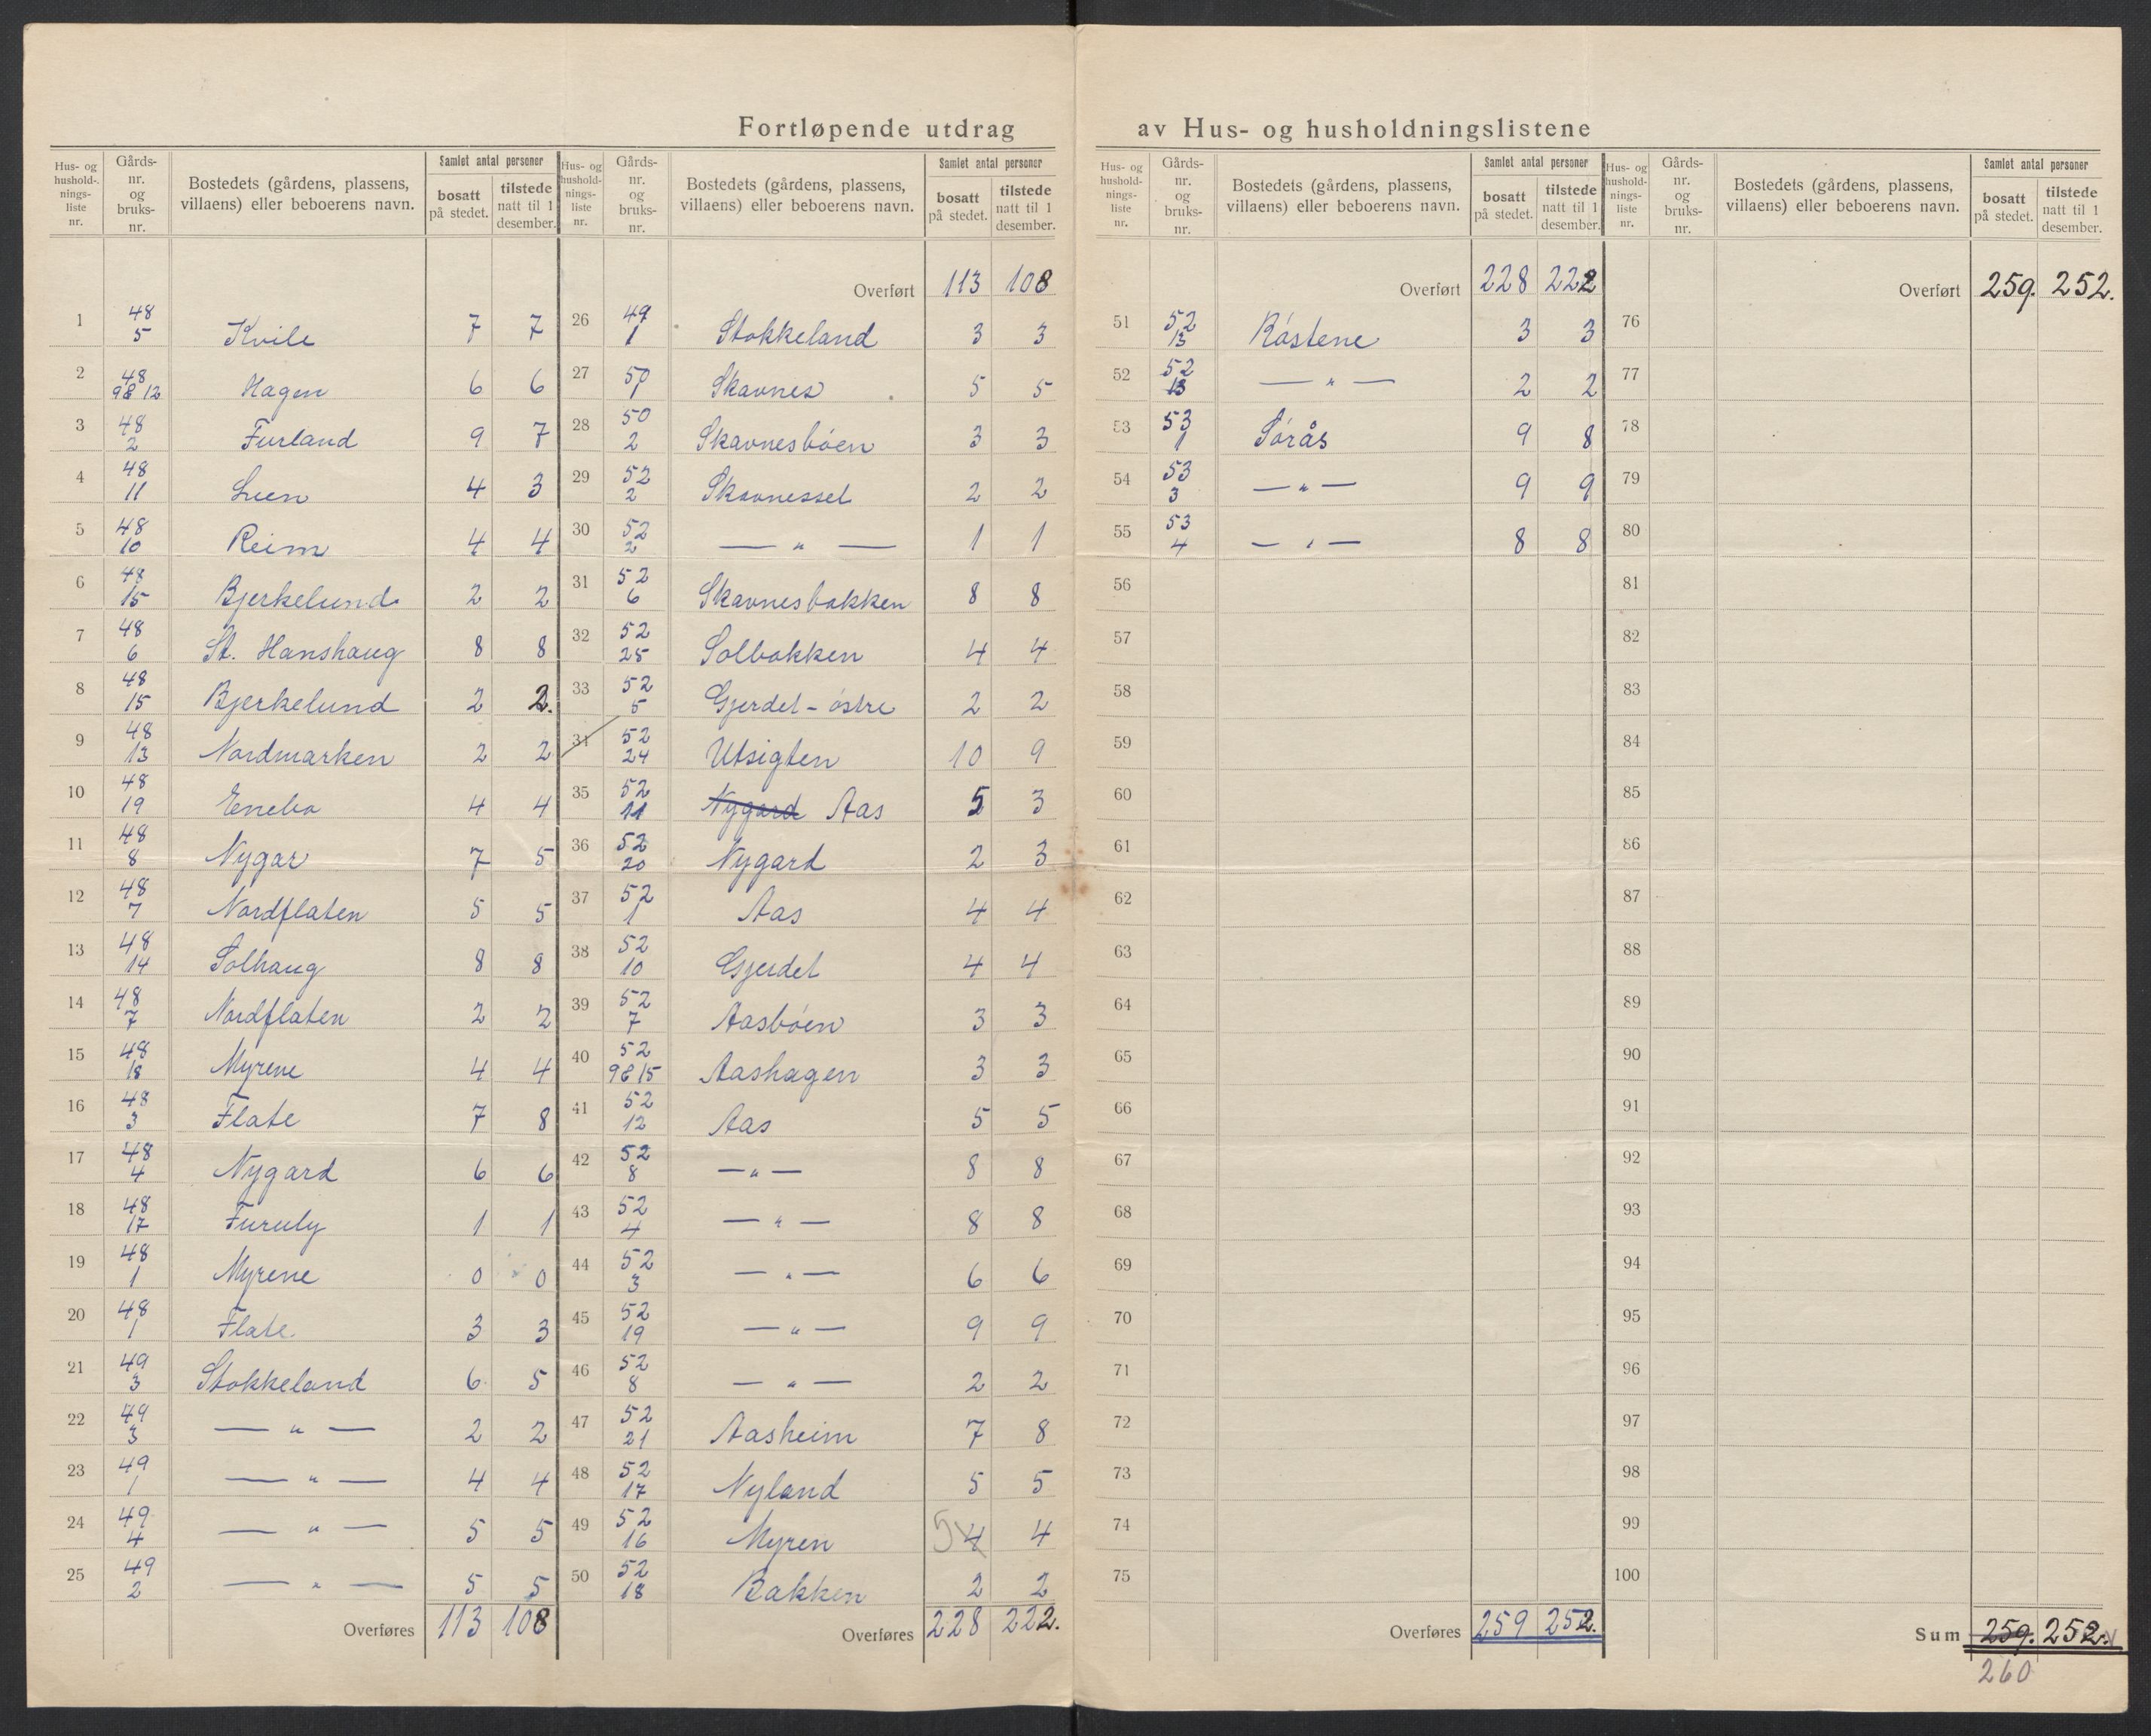 Fortløpende utdrag av Hus- og husholdningslistene
Hus- og hushold-nings-liste nr. | Gårds-nr. og bruks-nr. | Bostedets (gårdens, plassens, villaens) eller beboerens navn. | Samlet antal personer | bosatt på stedet. | tilstede natt til 1 desember.
1 48 5 Kvile 7 7
2 48 9 & 12 Hagen 6 6
3 48 2 Furland 9 7
4 48 11 Lien 4 3
5 48 10 Reim 4 4
6 48 15 Bjerkelund 2 2
7 48 6 St. Hanshaug 8 8
8 48 15 Bjerkelund 2 2.
9 48 13 Nordmarken 2 2
10 48 19 Enebo 4 4
11 48 8 Nygar 7 5
12 48 7 Nordflaten 5 5
13 48 14 Solhaug 8 8
14 48 7 Nordflaten 2 2
15 48 18 Myrene 4 4
16 48 3 Flate 7 8
17 48 4 Nygard 6 6
18 48 17 Furuly 1 1
19 48 1 Myrene 0 0
20 48 1 Flate. 3 3
21 49 3 Stokkeland 6 5
22 49 3 — " — 2 2
23 49 1 — " — 4 4
24 49 4 — " — 5 5
25 49 2 — " — 5 5
Overføres 113 108
Hus- og hushold-nings-liste nr. | Gårds-nr. og bruks-nr. | Bostedets (gårdens, plassens, villaens) eller beboerens navn. | Samlet antal personer | bosatt på stedet. | tilstede natt til 1 desember.
Overført 113 108
26 49 1 Stokkeland 3 3
27 50 1 Skavnes 5 5
28 50 2 Skavnesbøen 3 3
29 52 2 Skavnessel 2 2
30 52 2 — " — 1 1
31 52 6 Skavnesbakken 8 8
32 52 25 Solbakken 4 4
33 52 5 Gjerdet - østre 2 2
34 52 24 Utsigten 10 9
35 52 11 Nygard Aas 5 3
36 52 20 Nygard 2 3
37 52 1 Aas 4 4
38 52 10 Gjerdet 4 4
39 52 7 Aasbøen 3 3
40 52 9 & 15 Aashagen 3 3
41 52 12 Aas 5 5
42 52 8 — " — 8 8
43 52 4 — " — 8 8
44 52 3 — " — 6 6
45 52 19 — " — 9 9
46 52 8 — " — 2 2
47 52 21 Aasheim 7 8
48 52 17 Nyland 5 5
49 52 16 Myren 5 4 4
50 52 18 Bakken 2 2
Overføres 228 222.
Hus- og hushold-nings-liste nr. | Gårds-nr. og bruks-nr. | Bostedets (gårdens, plassens, villaens) eller beboerens navn. | Samlet antal personer | bosatt på stedet. | tilstede natt til 1 desember.
Overført 228 222
51 52 13 Røstene 3 3
52 52 13 — " — 2 2
53 53 1 Sørås 9 8
54 53 3 — " — 9 9
55 53 4 — " — 8 8
56
57
58
59
60
61
62
63
64
65
66
67
68
69
70
71
72
73
74
75
Overføres 259 252.
Hus- og hushold-nings-liste nr. | Gårds-nr. og bruks-nr. | Bostedets (gårdens, plassens, villaens) eller beboerens navn. | Samlet antal personer | bosatt på stedet. | tilstede natt til 1 desember.
Overført 259. 252.
76
77
78
79
80
81
82
83
84
85
86
87
88
89
90
91
92
93
94
95
96
97
98
99
100
Sum 259. 252.
260